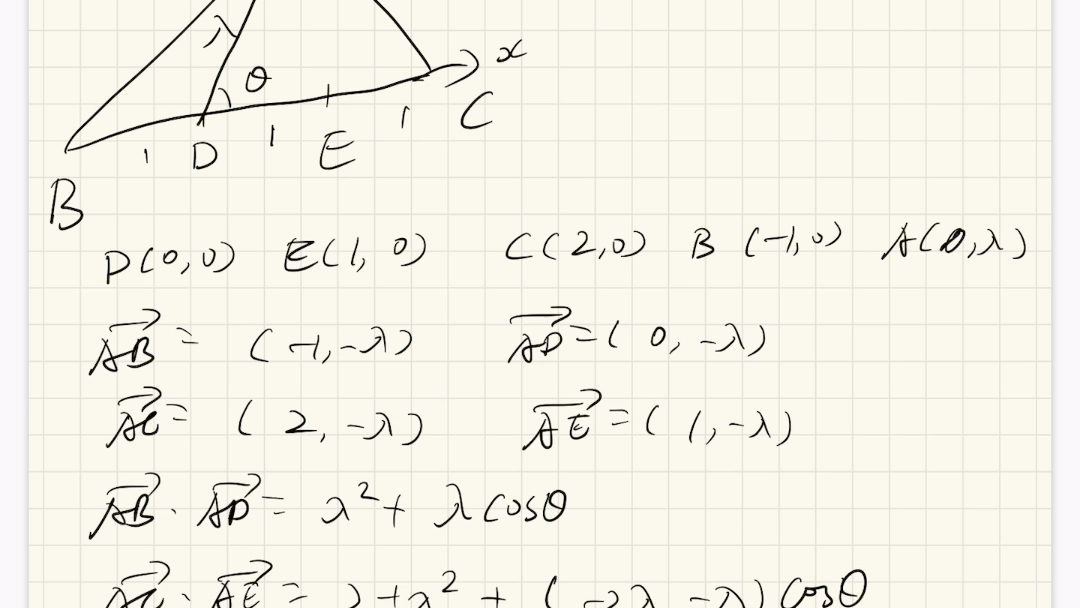 λ
θ x
1 D 1 E 1 C
B
D(0,0) E(1,0) C(2,0) B(-1,0) A(0,λ)
\overrightarrow{AB} = (-1,-λ) \overrightarrow{AD} = (0,-λ)
\overrightarrow{AC} = (2,-λ) \overrightarrow{AE} = (1,-λ)
\overrightarrow{AB} · \overrightarrow{AD} = λ² + λcosθ
\overrightarrow{AC} · \overrightarrow{AE} = 2+λ² + (-2λ-λ)cosθ